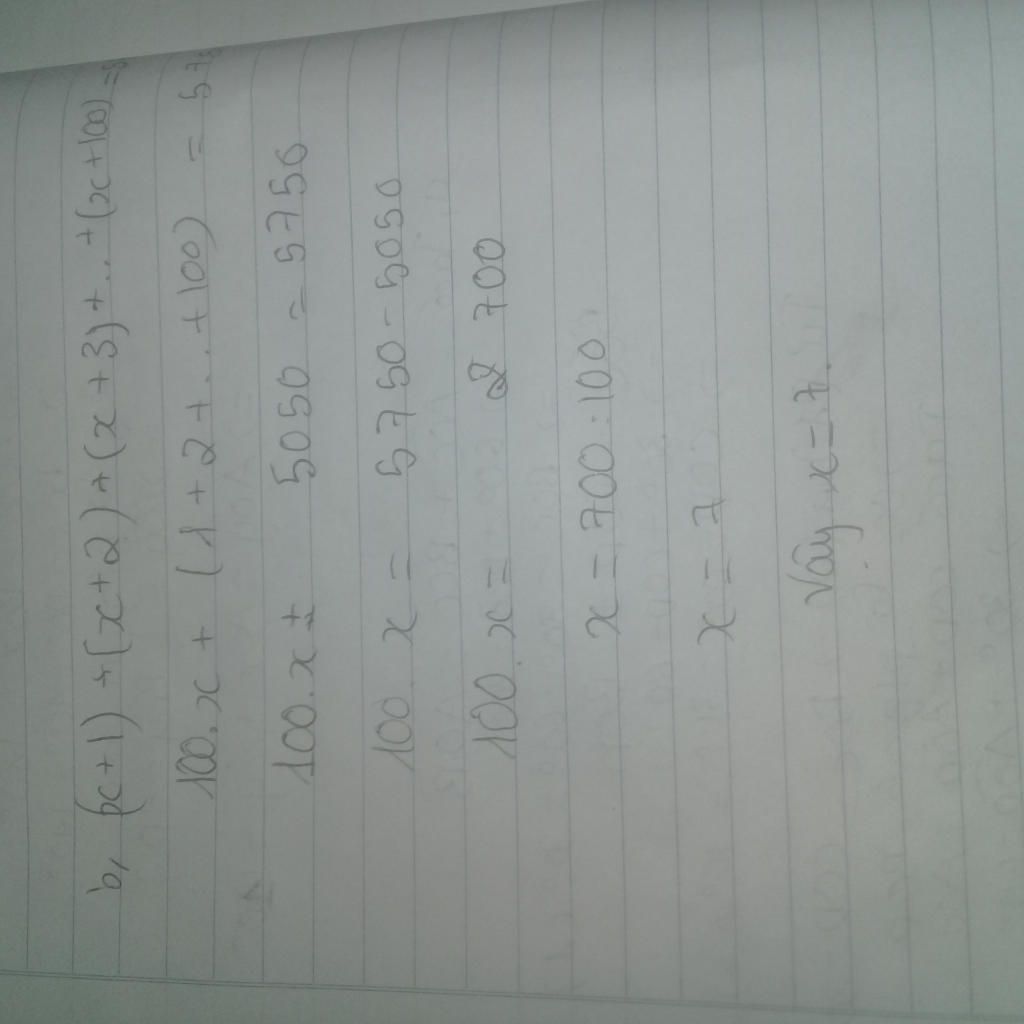 b, (x+1) + (x+2) + (x+3) + .. + (x+100) =
100.x + (1+2+...+100) = 575
100.x + 5050 = 5750
100.x = 5750-5050
100.x = 700
x = 700:100
x = 7
Vậy x=7.